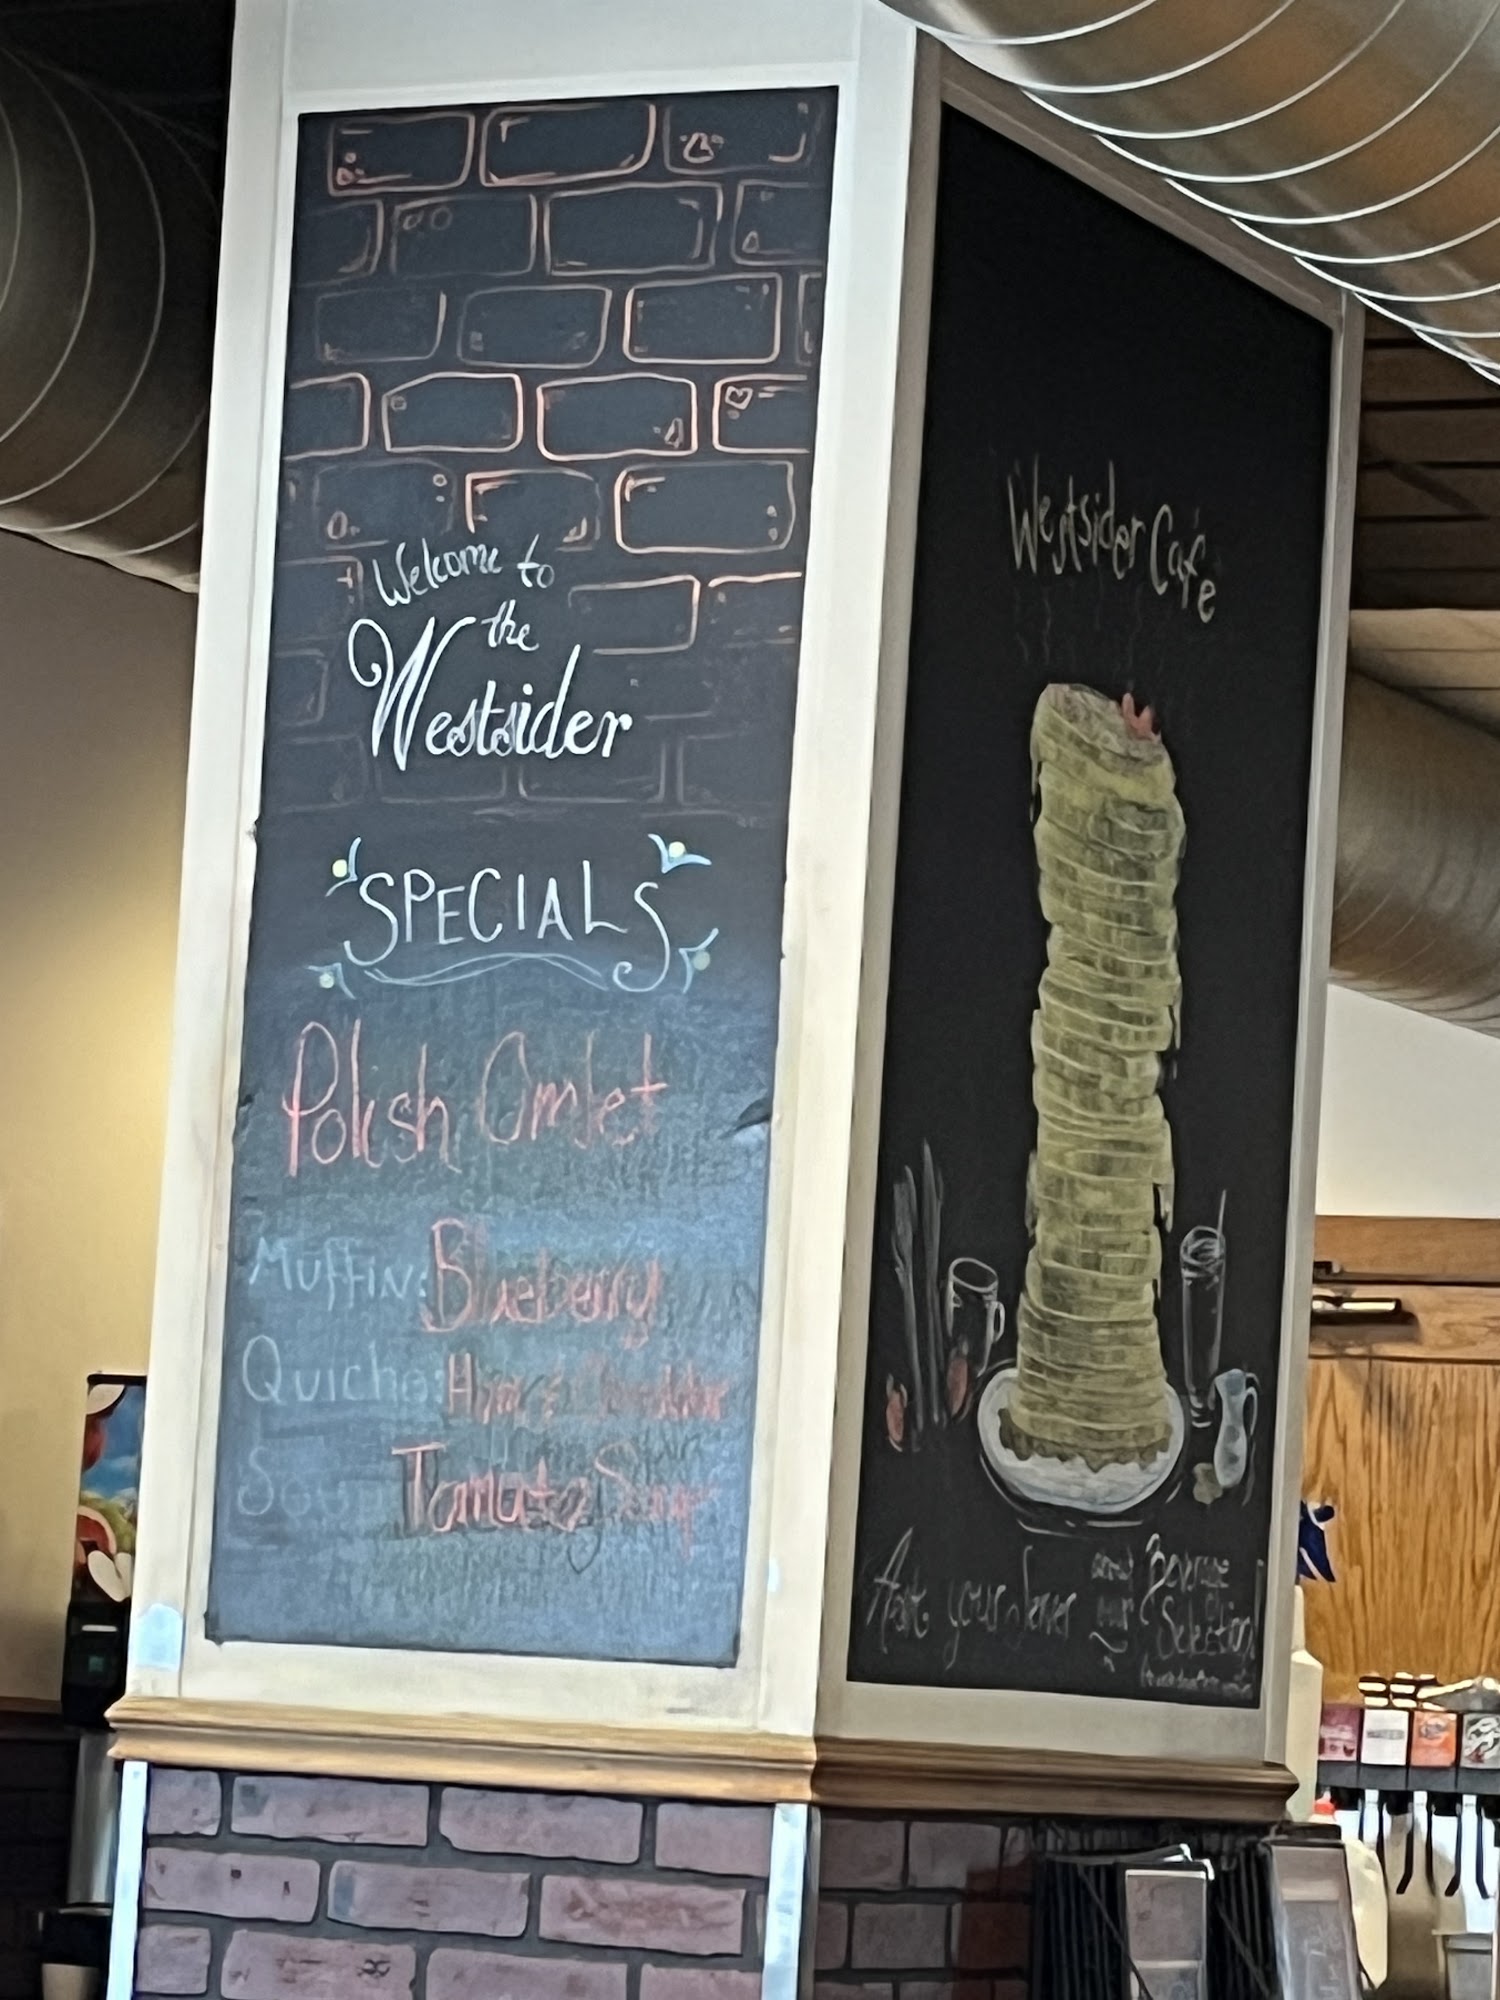 Welcome to
the
Westsider
SPECIALS
Polish Omlet
Muffin: Blueberry
Quiche: Ham & Cheddar
Soup Tomato Soup
Westsider Cafe
Ask your server and Beverage
our Selection